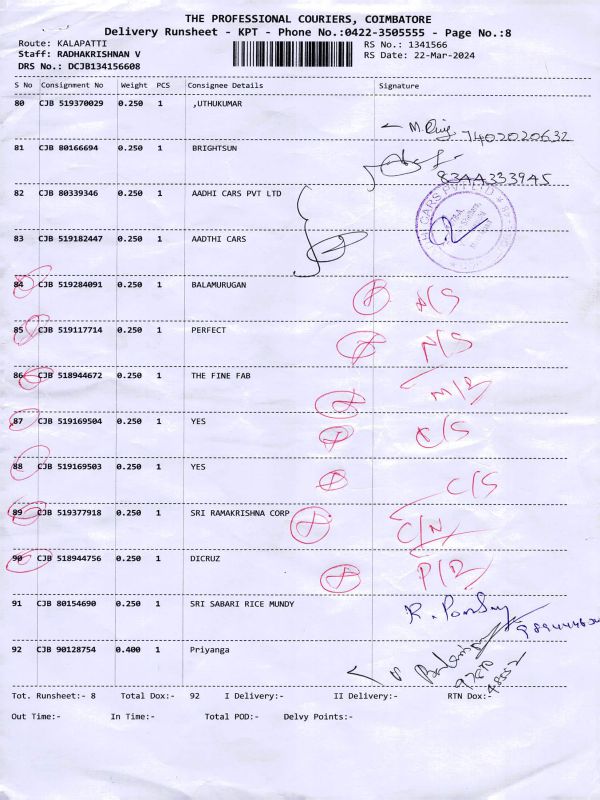 THE PROFESSIONAL COURIERS, COIMBATORE
Delivery Runsheet - KPT - Phone No.:0422-3505555 - Page No.:8
Route: KALAPATTI RS No.: 1341566
Staff: RADHAKRISHNAN V RS Date: 22-Mar-2024
DRS No.: DCJB134156608
S No Consignment No Weight PCS Consignee Details Signature
80 CJB 519370029 0.250 1 ,UTHUKUMAR
7402020632
81 CJB 80166694 0.250 1 BRIGHTSUN
82 CJB 80339346 0.250 1 AADHI CARS PVT LTD
83 CJB 519182447 0.250 1 AADTHI CARS
84 CJB 519284091 0.250 1 BALAMURUGAN
85 CJB 519117714 0.250 1 PERFECT N/S
86 CJB 518944672 0.250 1 THE FINE FAB
87 CJB 519169504 0.250 1 YES C/S
88 CJB 519169503 0.250 1 YES C/S
89 CJB 519377918 0.250 1 SRI RAMAKRISHNA CORP C/N
90 CJB 518944756 0.250 1 DICRUZ
91 CJB 80154690 0.250 1 SRI SABARI RICE MUNDY
92 CJB 90128754 0.400 1 Priyanga
Tot. Runsheet:- 8 Total Dox:- 92 I Delivery:- II Delivery:- RTN Dox:-
Out Time:- In Time:- Total POD:- Delvy Points:-